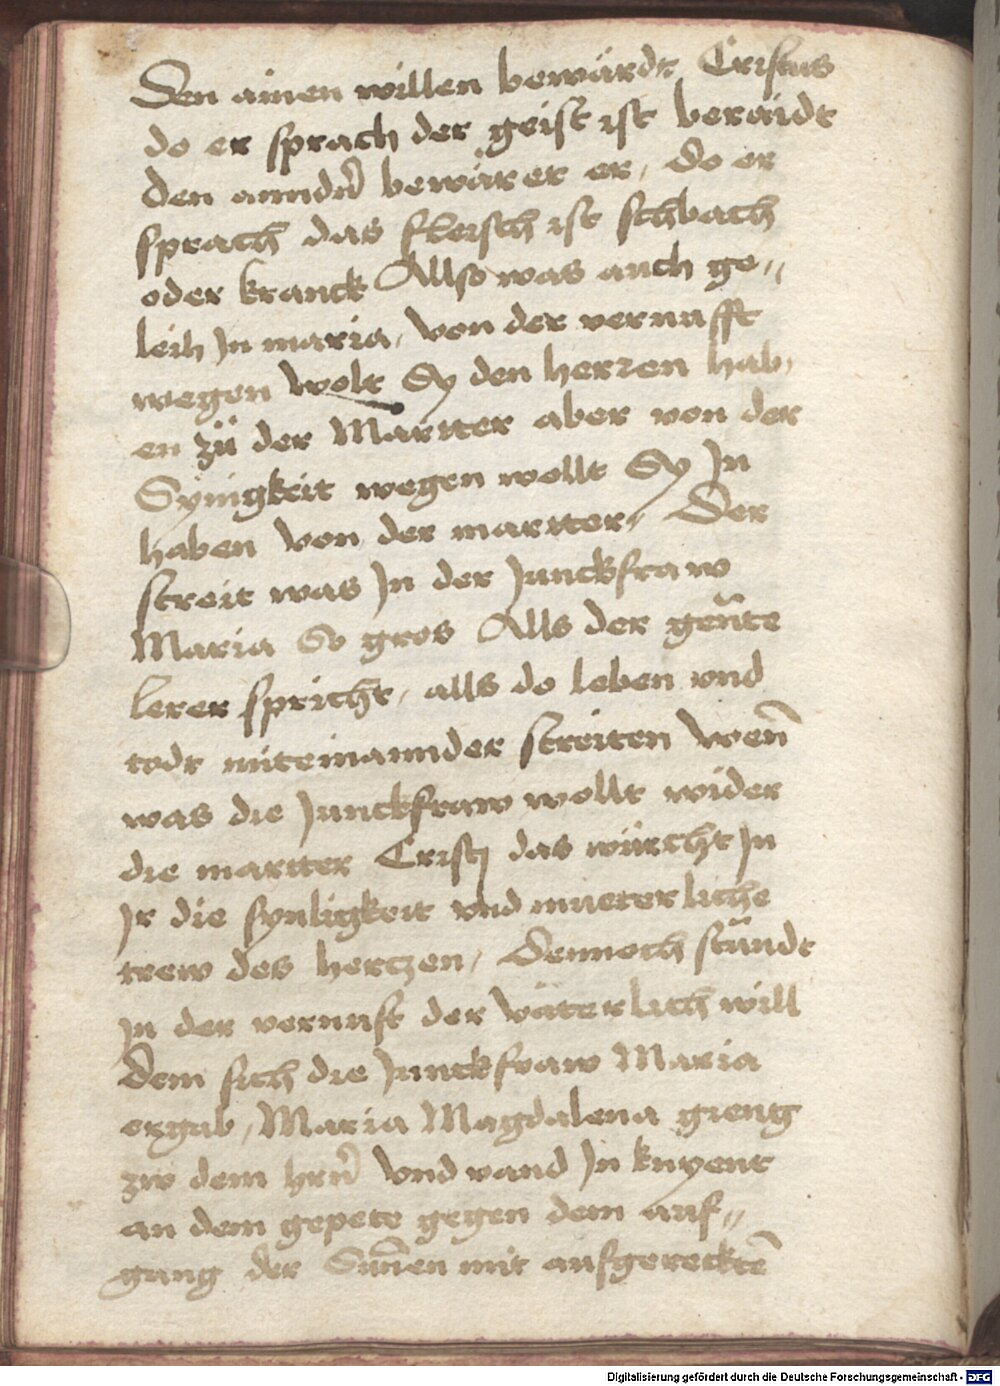 Den ainen willen bewärdt Cristus
do er sprach der geist ist beraidt
den anndern̄ bewärer er, Do er
sprach das fleisch ist schbach
oder kranck Allso was auch ge„
leih Jn maria, Von der vernufft
wegen wolt Sy den herren hab„
en zü der Martter aber von der
Synigkeit wegen wollt Sy Jn
haben von der martter, Der
streit was Jn der Junckfraw
Maria So gros Alls der genāte
lerer spricht, alls do leben vnd
todt miteinannder streiten Wen̄
was die Junckfraw wollt wider
die martter Cristj das würcht Jn
Jr die synligkeit vnd mueterliche
trew des hertzen, Dennoch stündt
Jn der vernuft der väterlich will
Dem sich die Junckfraw Maria
ergab, Maria Magdalena gieng
zw dem hrn̄ Vnd vand Jn knyent
an dem gepete gegen dem auf„
gang der Sun̄en mit aufgerecktē
Digitalisierung gefördert durch die Deutsche Forschungsgemeinschaft - DFG